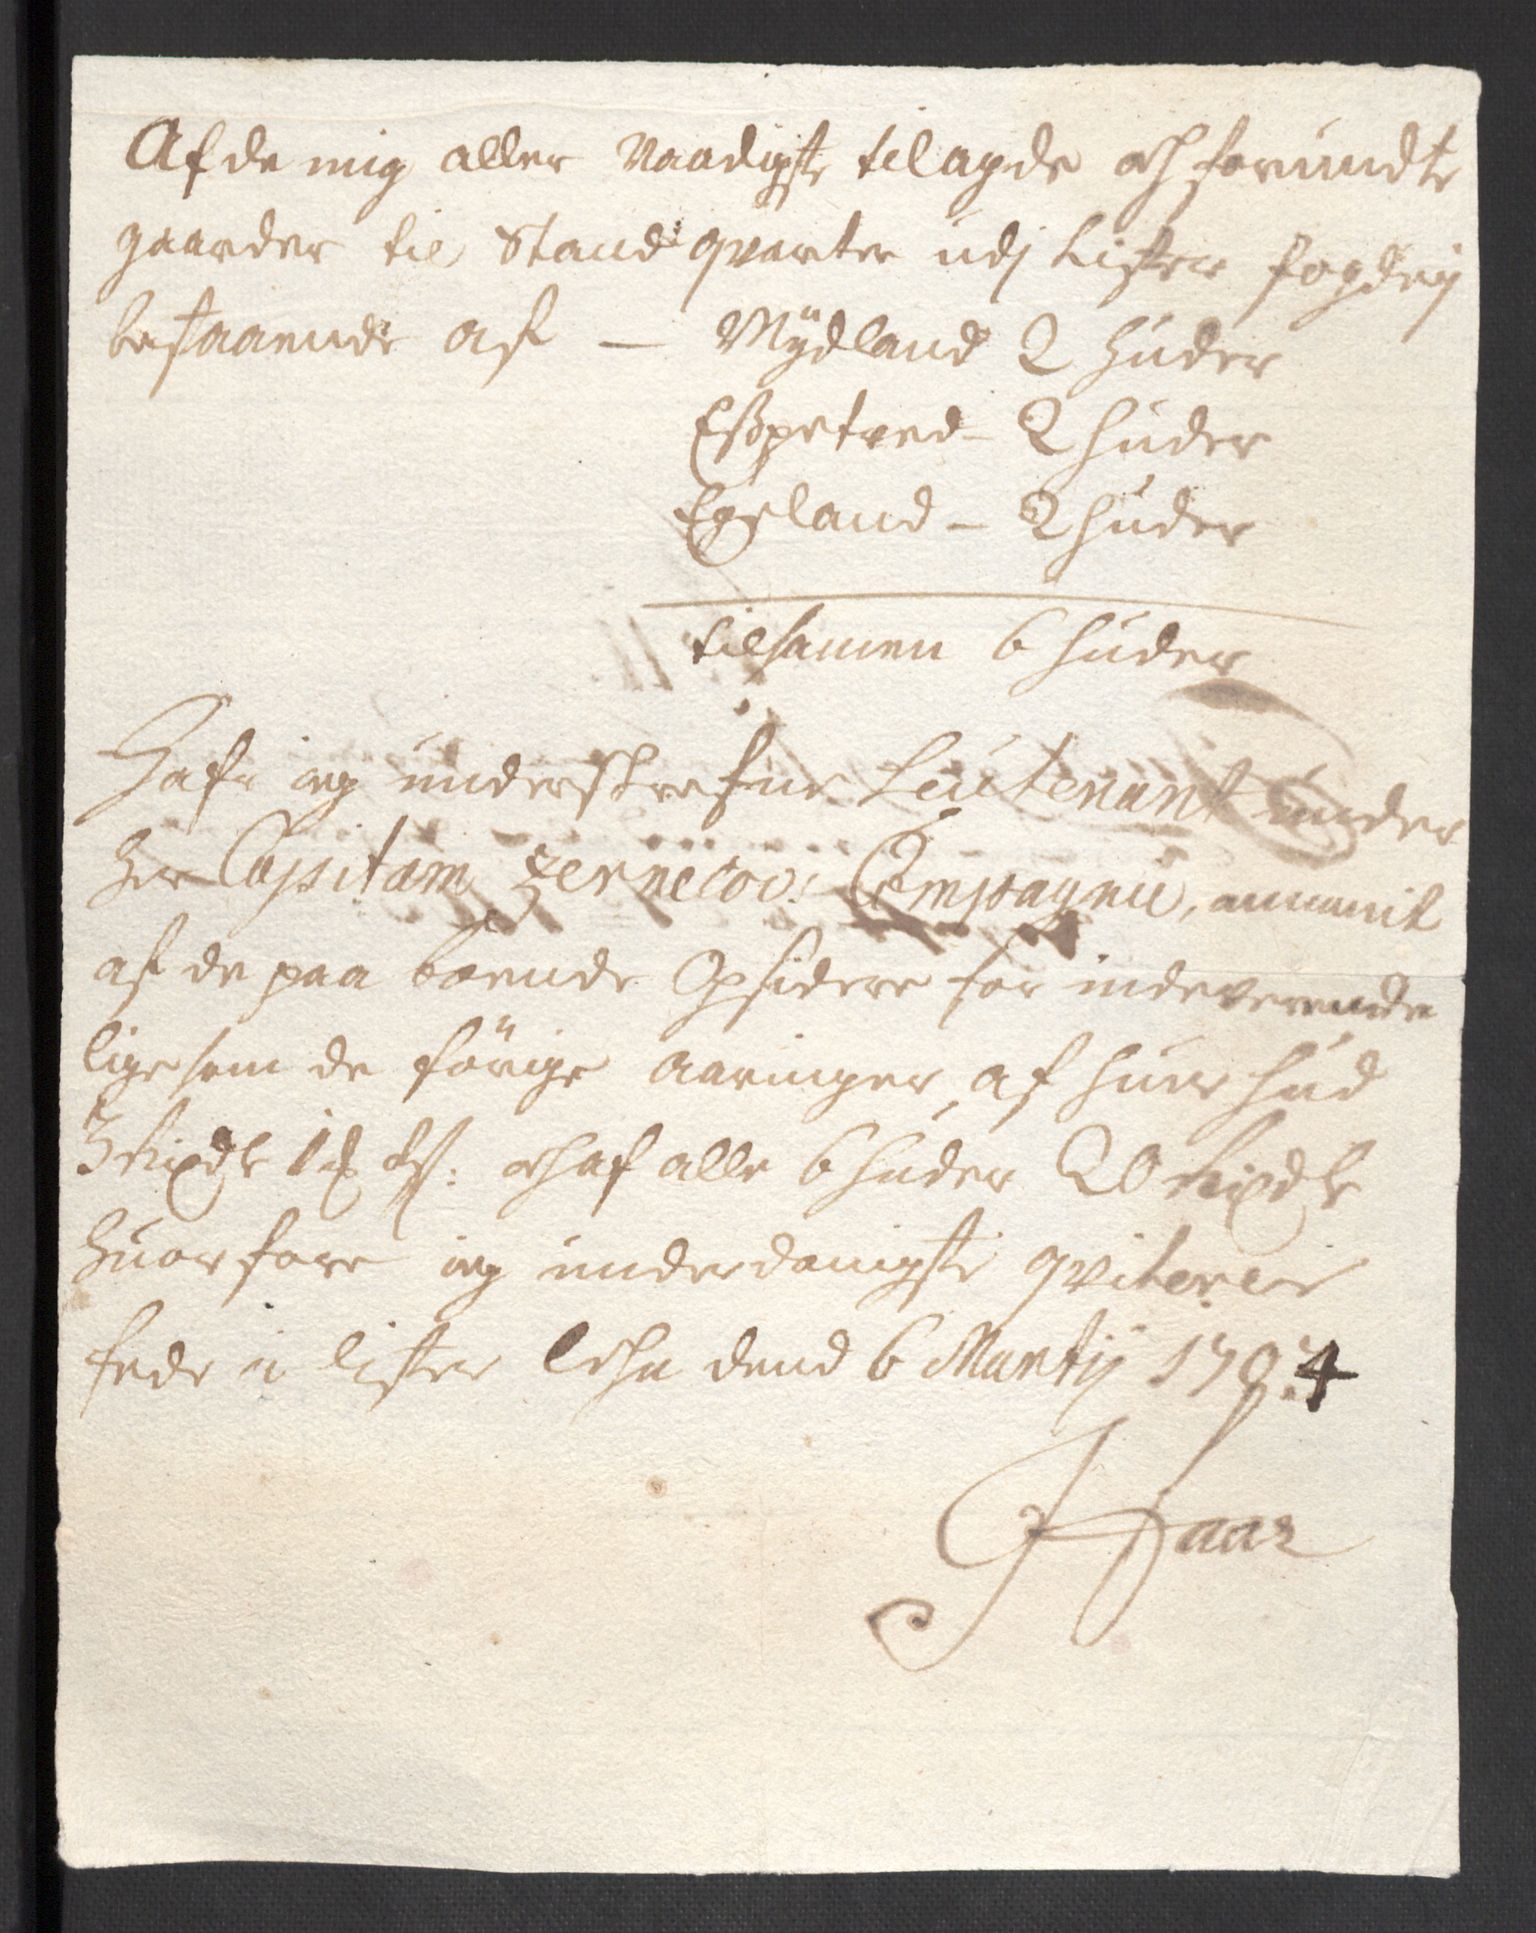 Af de mig aller Naadigste tilagde och forundte
gaarder til Stand qvarter udj Lister fogderj
bestaaende af — Mÿdland 2 huder
Eßpetved – 2 huder
Egeland – 2 huder
tilsamen 6 huder
Hafr ieg underskrefne Leutenant under
her Capitain Zernecov: Compagnie, annamit
af de paa boende Opsidere for indeverende
lige som de förige aaringer, af huer hud
3 Rixdlr 1 och af alle 6 huder 20 Rixdlr
huorfore ieg underdanigste qviterer
fede i lister Lehn dend 6 Martij 1704
Haar